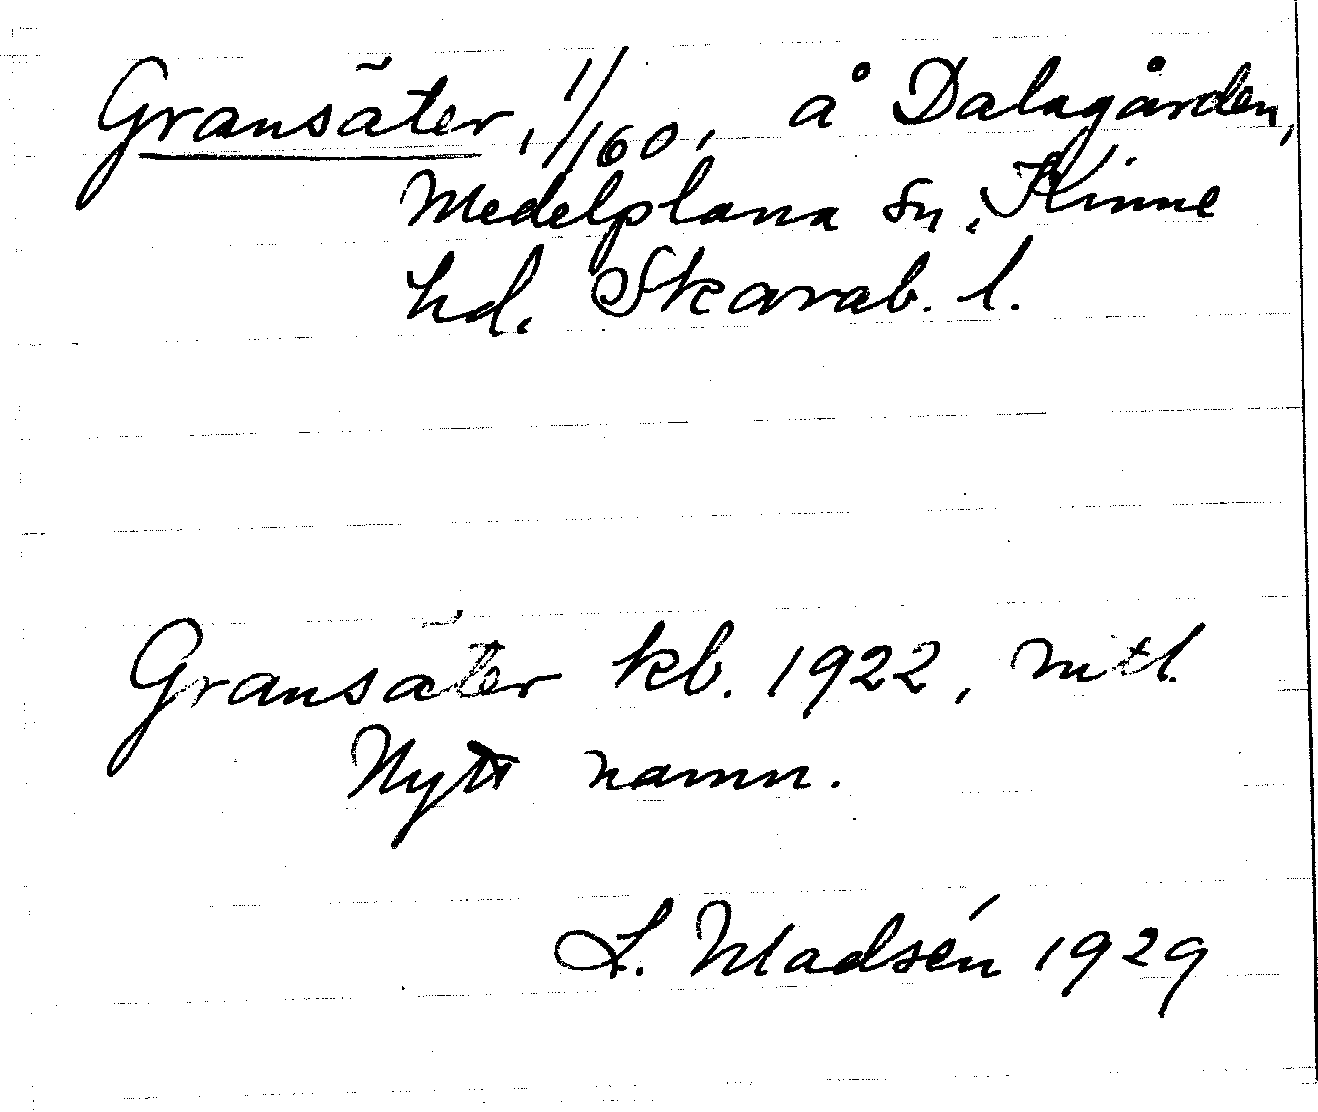 Gransäter, 1/160, å Dalagården,
Medelplana sn, Kinne
hd. Skarab. l.
Gransäter kb. 1922, mtl.
Nytt namn.
L. Madsén 1929